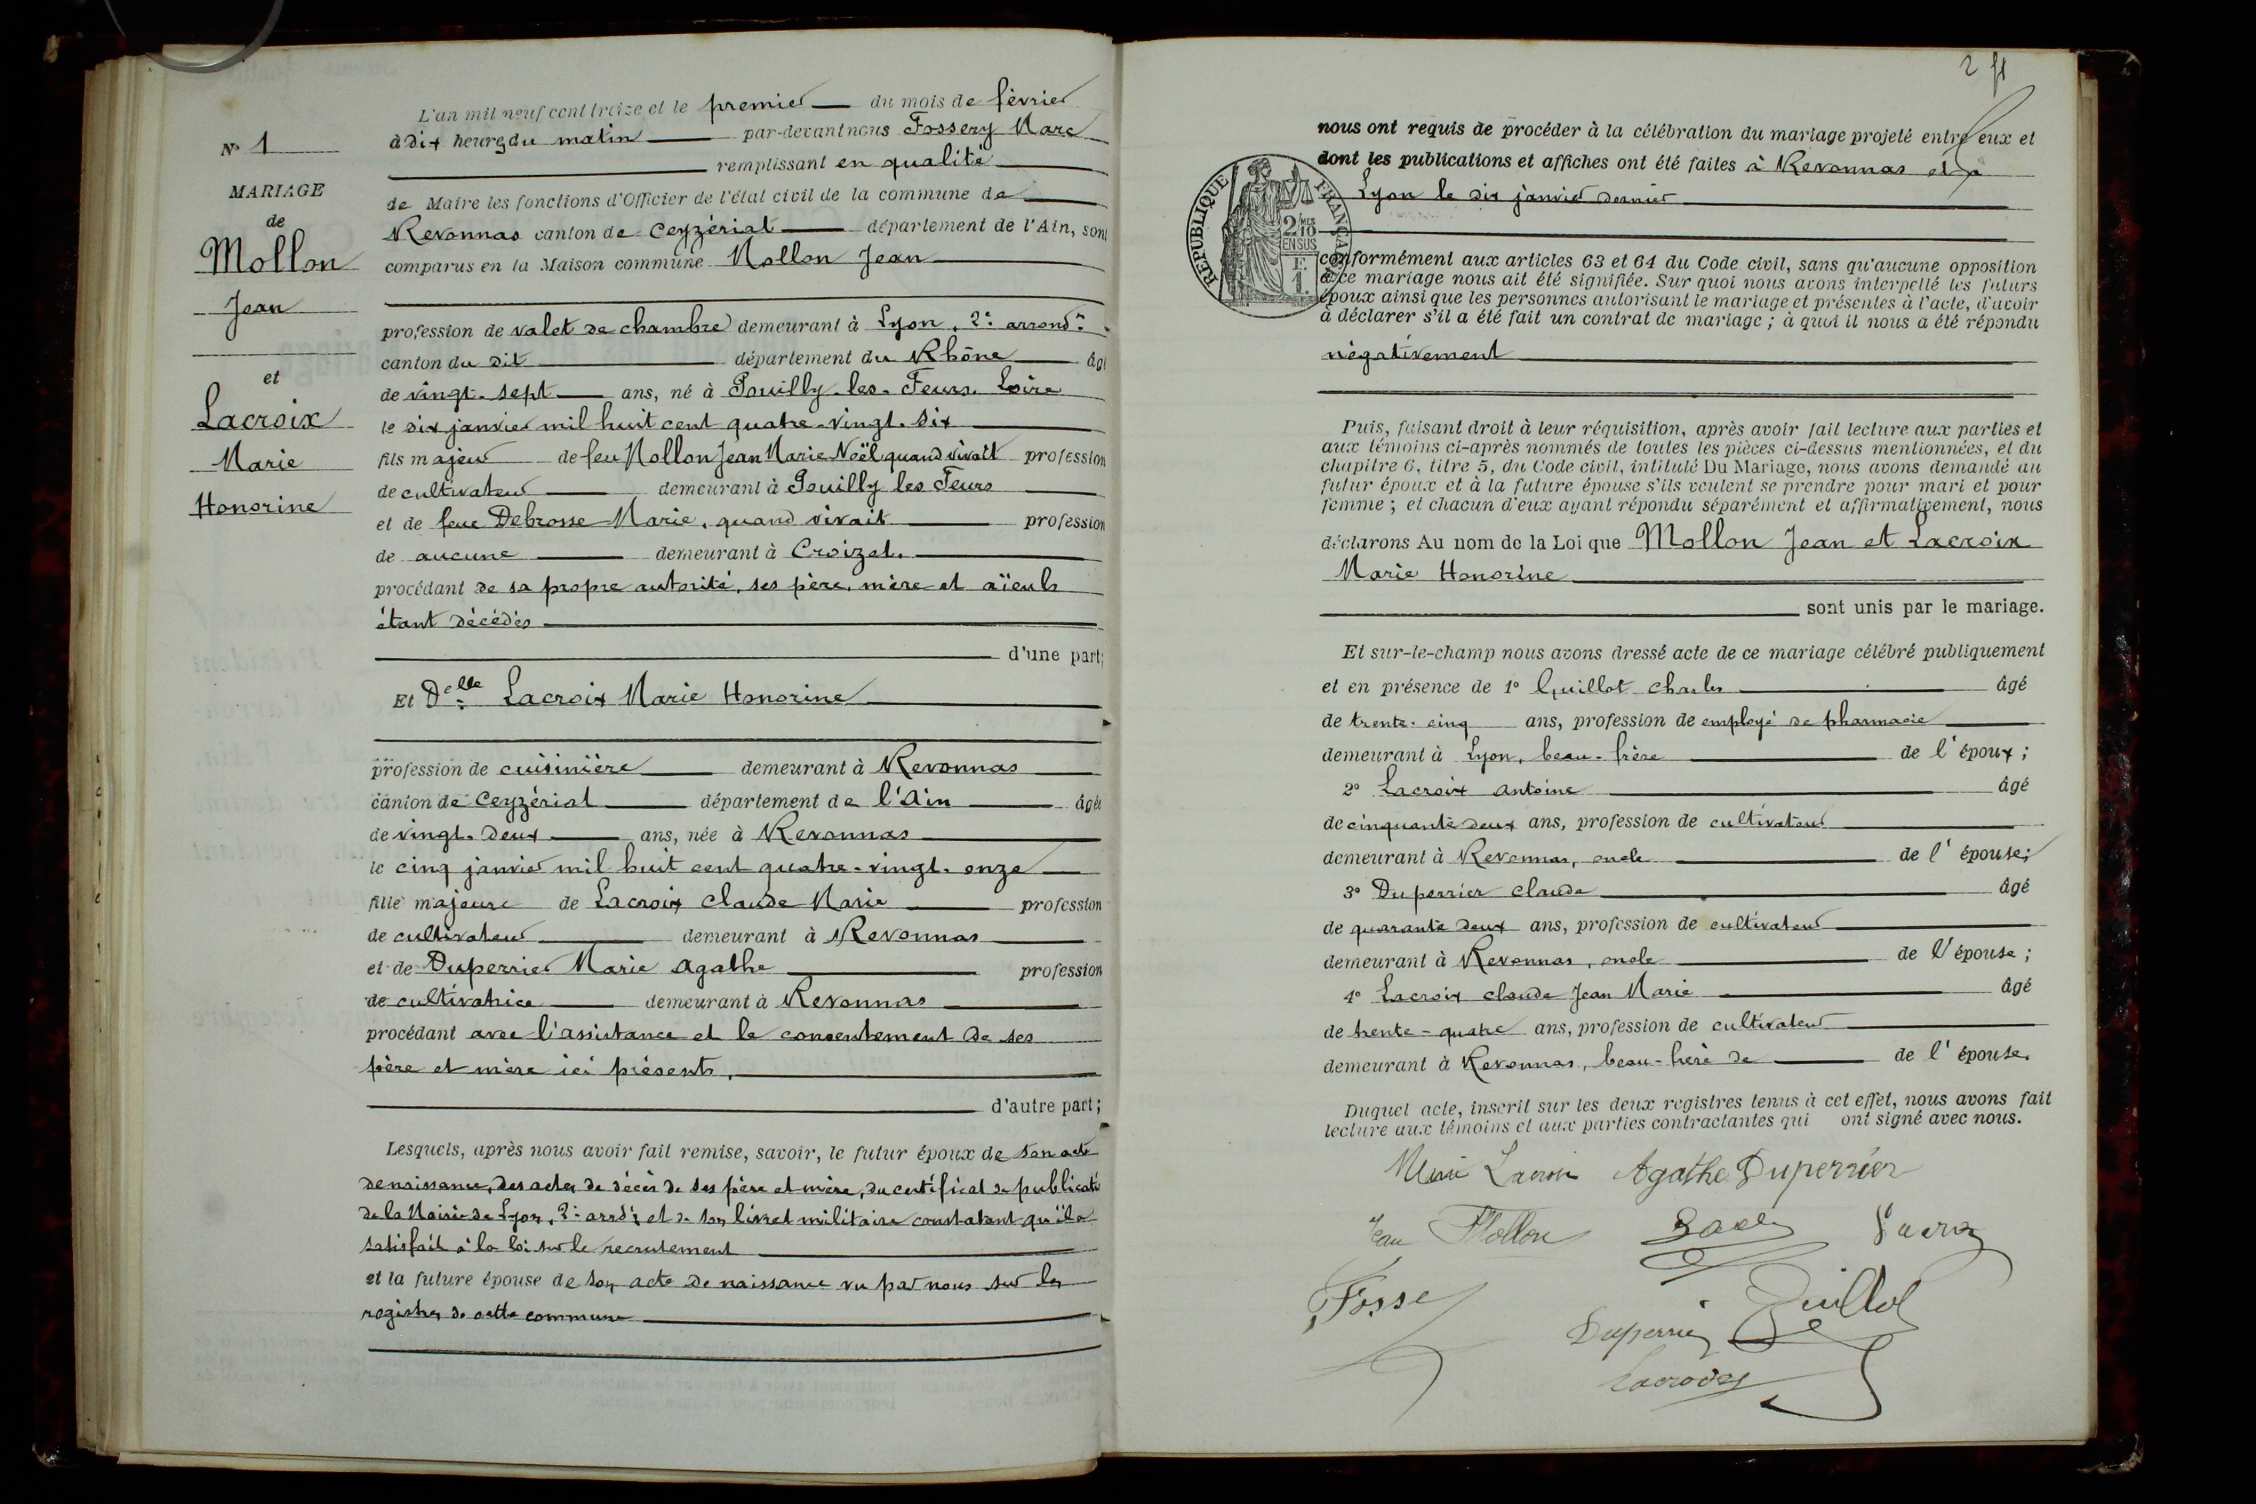 L'an mil neuf cent treize et le premier du mois de février
N° 1
à dix heures du matin par-devant nous Fossery Marc
remplissant en qualité
MARIAGE
de Maire les fonctions d'Officier de l'état civil de la commune de
de
Revonnas canton de Ceyzériat département de l'Ain, sont
Mollon
comparus en la Maison commune Mollon Jean
Jean
profession de valet de chambre demeurant à Lyon, 2e arrondt
canton du dit département du Rhône âgé
et
de vingt-sept ans, né à Pouilly-les-Feurs, Loire
Lacroix
le six janvier mil huit cent quatre-vingt-six
Marie
fils majeur de feu Mollon Jean Marie Noël quand vivait profession
de cultivateur demeurant à Pouilly les Feurs
Honorine
et de feue Debrosse Marie, quand vivait profession
de aucune demeurant à Croizet.
procédant de sa propre autorité, ses père, mère et aïeuls
étant décédés
d'une part;
Et Delle Lacroix Marie Honorine
profession de cuisinière demeurant à Revonnas
canton de Ceyzériat département de l'Ain âgée
de vingt-deux ans, née à Revonnas
le cinq janvier mil huit cent quatre-vingt-onze
fille majeure de Lacroix Claude Marie profession
de cultivateur demeurant à Revonnas
et de Duperrier Marie Agathe profession
de cultivatrice demeurant à Revonnas
procédant avec l'assistance et le consentement de ses
père et mère ici présents.
d'autre part;
Lesquels, après nous avoir fait remise, savoir, le futur époux de son acte
de naissance, des actes de décès de ses père et mère, du certificat de publicatn
de la Mairie de Lyon, 2e arrdt, et de son livret militaire constatant qu'il a
satisfait à la loi sur le recrutement
et la future épouse de son acte de naissance vu par nous sur les
registres de cette commune
2
nous ont requis de procéder à la célébration du mariage projeté entre eux et
dont les publications et affiches ont été faites à Revonnas et à
Lyon le dix janvier dernier
RÉPUBLIQUE FRANÇAISE
2/10 EN SUS
F. 1.
conformément aux articles 63 et 64 du Code civil, sans qu'aucune opposition
à ce mariage nous ait été signifiée. Sur quoi nous avons interpellé les futurs
époux ainsi que les personnes autorisant le mariage et présentes à l'acte, d'avoir
à déclarer s'il a été fait un contrat de mariage ; à quoi il nous a été répondu
négativement
Puis, faisant droit à leur réquisition, après avoir fait lecture aux parties et
aux témoins ci-après nommés de toutes les pièces ci-dessus mentionnées, et du
chapitre 6, titre 5, du Code civil, intitulé Du Mariage, nous avons demandé au
futur époux et à la future épouse s'ils veulent se prendre pour mari et pour
femme ; et chacun d'eux ayant répondu séparément et affirmativement, nous
déclarons Au nom de la Loi que Mollon Jean et Lacroix
Marie Honorine
sont unis par le mariage.
Et sur-le-champ nous avons dressé acte de ce mariage célébré publiquement
et en présence de 1° Guillot Charles âgé
de trente-cinq ans, profession de employé de pharmacie
demeurant à Lyon, beau-frère de l'époux ;
2° Lacroix Antoine âgé
de cinquante deux ans, profession de cultivateur
demeurant à Revonnas, oncle de l'épouse;
3° Duperrier Claude âgé
de quarante deux ans, profession de cultivateur
demeurant à Revonnas, oncle de l'épouse ;
4° Lacroix Claude Jean Marie âgé
de trente-quatre ans, profession de cultivateur
demeurant à Revonnas, beau-frère de de l'épouse.
Duquel acte, inscrit sur les deux registres tenus à cet effet, nous avons fait
lecture aux témoins et aux parties contractantes qui ont signé avec nous.
Marie Lacroix Agathe Duperrier
Jean Mollon
Guillot
Duperrier